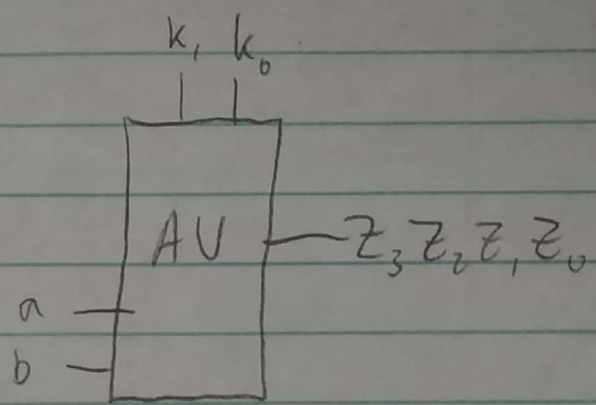 k₁ k₀
AU
Z₃ Z₂ Z₁ Z₀
a
b